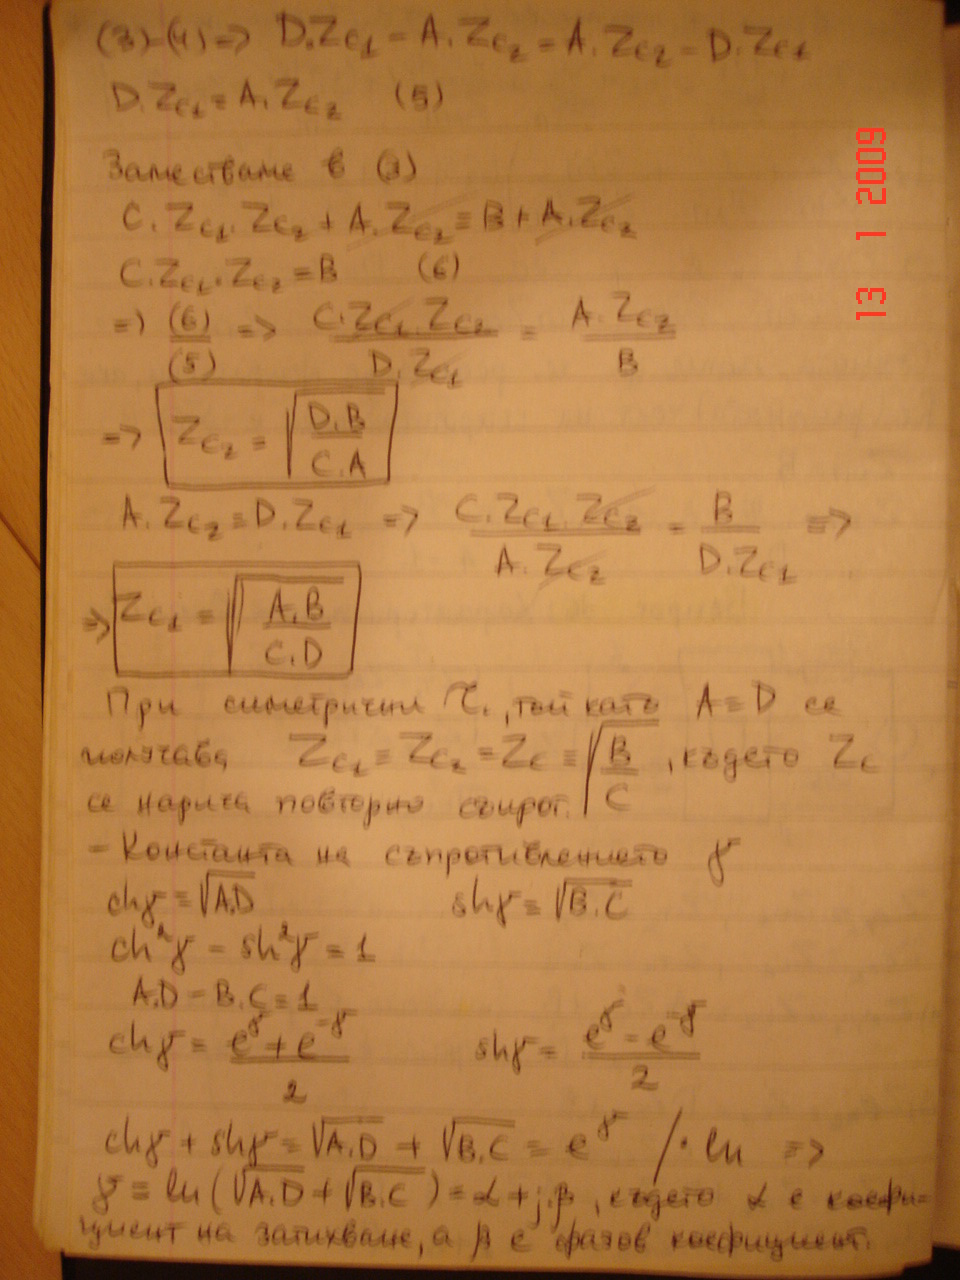 (3)-(4) => D.Zc₁ - A.Zc₂ = A.Zc₂ - D.Zc₁
D.Zc₁ = A.Zc₂ (5)
Заместваме в (3)
C.Zc₁.Zc₂ + A.Zc₂ = B + A.Zc₂
C.Zc₁.Zc₂ = B (6)
=> (6)/(5) => C.Zc₁.Zc₂/D.Zc₁ = A.Zc₂/B
=> Zc₂ = √(D.B/C.A)
A.Zc₂ = D.Zc₁ => C.Zc₁.Zc₂/A.Zc₂ = B/D.Zc₁ =>
=> Zc₁ = √(A.B/C.D)
При симетрични τ., тъй като A = D се
получава Zc₁ = Zc₂ = Zc = √(B/C), където Zc
се нарича повторно съпрот.
- Константа на съпротивлението γ
chγ = √A.D shγ = √B.C
ch²γ - sh²γ = 1
A.D - B.C = 1
chγ = (e^γ + e^-γ)/2 shγ = (e^γ - e^-γ)/2
chγ + shγ = √A.D + √B.C = e^γ /. ln =>
γ = ln(√A.D + √B.C) = α + j.β, където α е коефи-
циент на затихване, а β е фазов коефициент.
13 1 2009